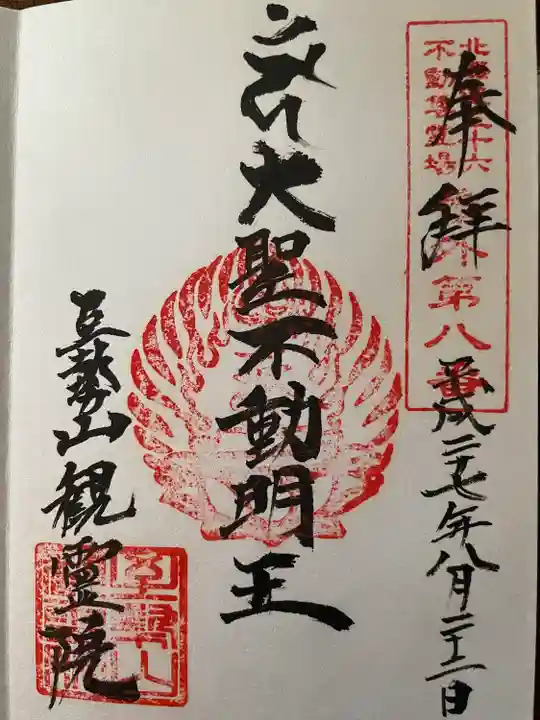 奉拝
北海道三十六
不動尊霊場
番外第八番
平成二十七年八月二十二日
大聖不動明王
山観霊院